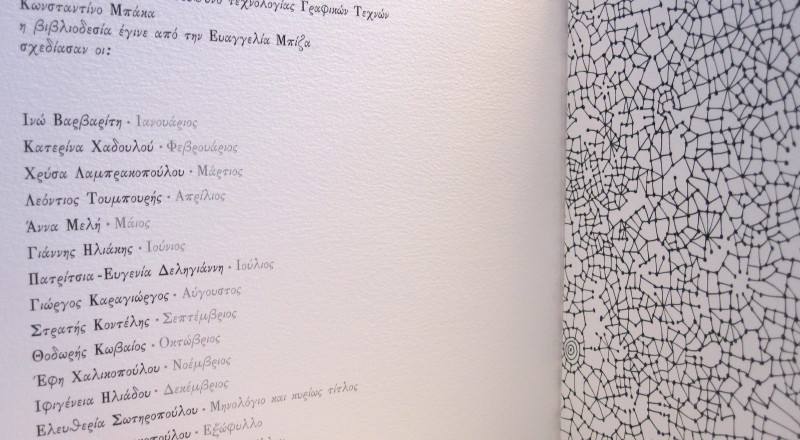 τεχνολογίας Γραφικών Τεχνών
Κωνσταντίνο Μπάκα
η βιβλιοδεσία έγινε από την Ευαγγελία Μπίζα
σχεδίασαν οι:
Ινώ Βαρβαρίτη · Ιανουάριος
Κατερίνα Χαδουλού · Φεβρουάριος
Χρύσα Λαμπρακοπούλου · Μάρτιος
Λεόντιος Τουμπουρής · Απρίλιος
Άννα Μελή · Μάιος
Γιάννης Ηλιάκης · Ιούνιος
Πατρίτσια-Ευγενία Δεληγιάννη · Ιούλιος
Γιώργος Καραγιώργος · Αύγουστος
Στρατής Κοντέλης · Σεπτέμβριος
Θοδωρής Κωβαίος · Οκτώβριος
Έφη Χαλικοπούλου · Νοέμβριος
Ιφιγένεια Ηλιάδου · Δεκέμβριος
Ελευθερία Σωτηροπούλου · Μηνολόγιο και κυρίως τίτλος
· Εξώφυλλο